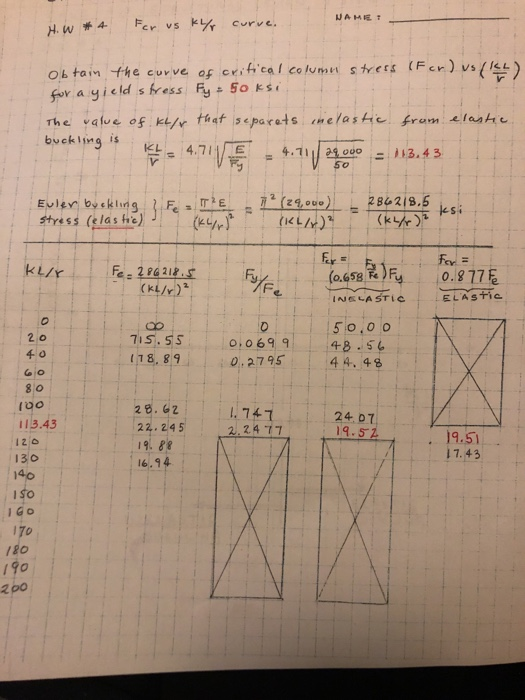 H.W # 4 Fcr vs KL/r curve. NAME:
Obtain the curve of critical column stress (Fcr) vs (KL/r)
for a yield stress Fy = 50 ksi
The value of KL/r that separets inelastic from elastic
buckling is
KL/r = 4.71 √(E/Fy) = 4.71 √(29,000/50) = 113.43
Euler buckling stress (elastic) } Fe = π²E/(KL/r)² = π²(29,000)/(KL/r)² = 286218.5/(KL/r)² ksi
KL/r Fe = 286218.5/(KL/r)² Fy/Fe Fcr = (0.658^(Fy/Fe)) Fy INELASTIC Fcr = 0.877 Fe ELASTIC
0 ∞ 0 50.00
20 715.55 0.0699 48.56
40 178.89 0.2795 44.48
60
80
100 28.62 1.747 24.07
113.43 22.245 2.2477 19.52 19.51
120 19.88 17.43
130 16.94
140
150
160
170
180
190
200